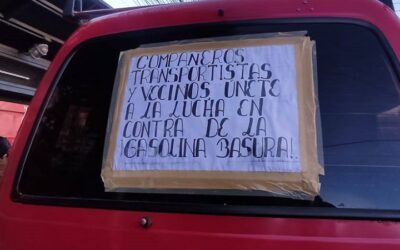 COMPAÑEROS
TRANSPORTISTAS
Y VECINOS UNETE
A LA LUCHA EN
CONTRA DE LA
GASOLINA BASURA!.